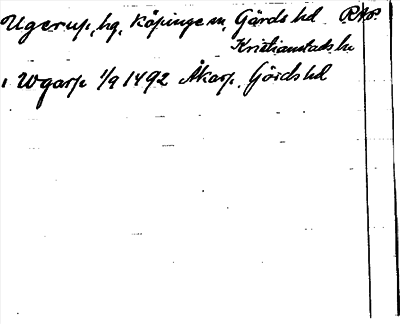 Ugerup, hg, Köpinge sn, Gärds hd RAP
Kristianstads ln
i Wgarp 1/9 1492 Åkarp. Gärds hd